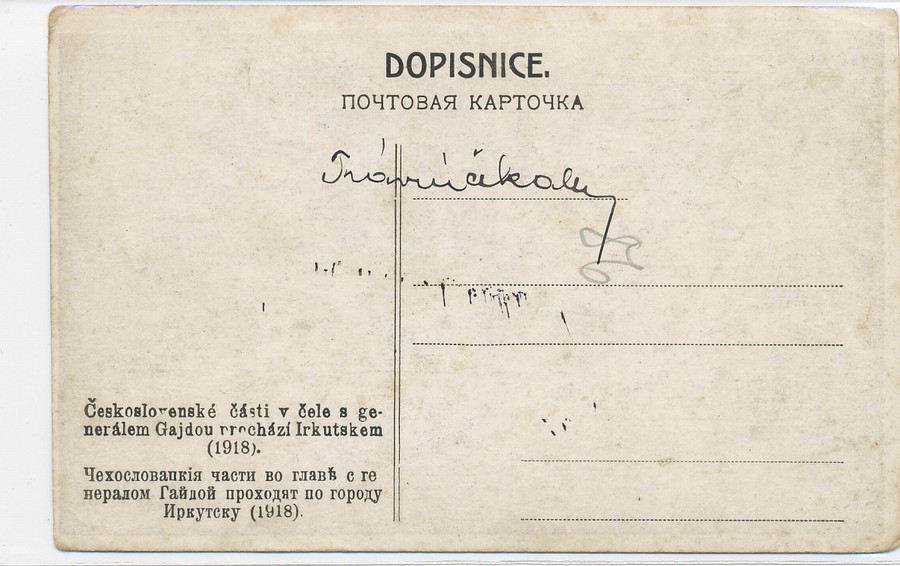 DOPISNICE.
ПОЧТОВАЯ КАРТОЧКА
Československé části v čele s ge-
nerálem Gajdou prochází Irkutskem
(1918).
Чехословацкія части во главѣ с ге
нералом Гайдой проходят по городу
Иркутску (1918).